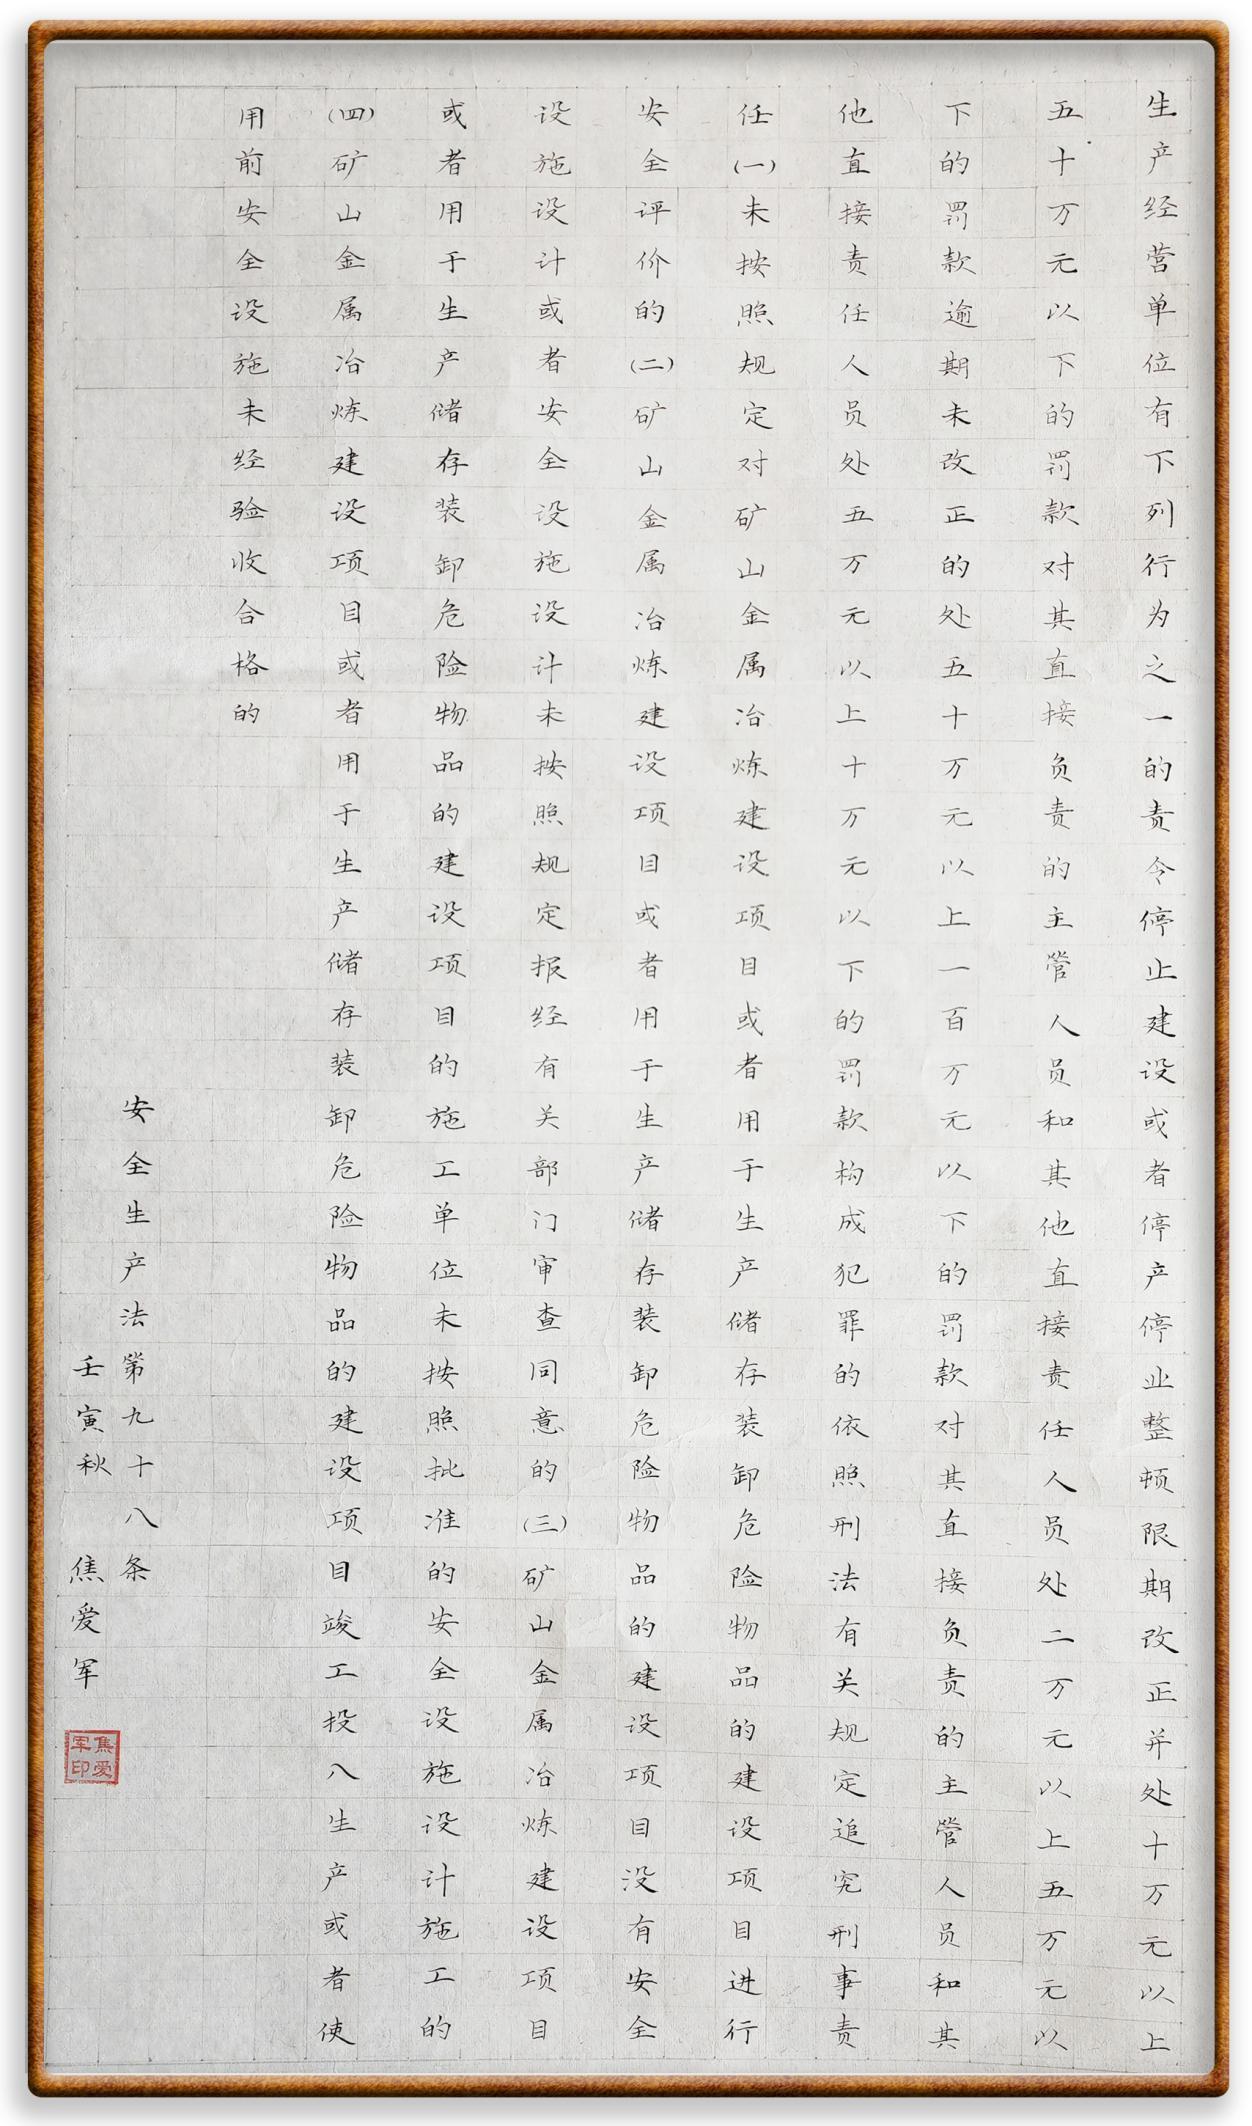 生产经营单位有下列行为之一的责令停止建设或者停产停业整顿限期改正并处十万元以上
五十万元以下的罚款对其直接负责的主管人员和其他直接责任人员处二万元以上五万元以
下的罚款逾期未改正的处五十万元以上一百万元以下的罚款对其直接负责的主管人员和其
他直接责任人员处五万元以上十万元以下的罚款构成犯罪的依照刑法有关规定追究刑事责
任(一)未按照规定对矿山金属冶炼建设项目或者用于生产储存装卸危险物品的建设项目进行
安全评价的(二)矿山金属冶炼建设项目或者用于生产储存装卸危险物品的建设项目没有安全
设施设计或者安全设施设计未按照规定报经有关部门审查同意的(三)矿山金属冶炼建设项目
或者用于生产储存装卸危险物品的建设项目的施工单位未按照批准的安全设施设计施工的
(四)矿山金属冶炼建设项目或者用于生产储存装卸危险物品的建设项目竣工投入生产或者使
用前安全设施未经验收合格的
安全生产法第九十八条
壬寅秋 焦爱军
焦爱军印